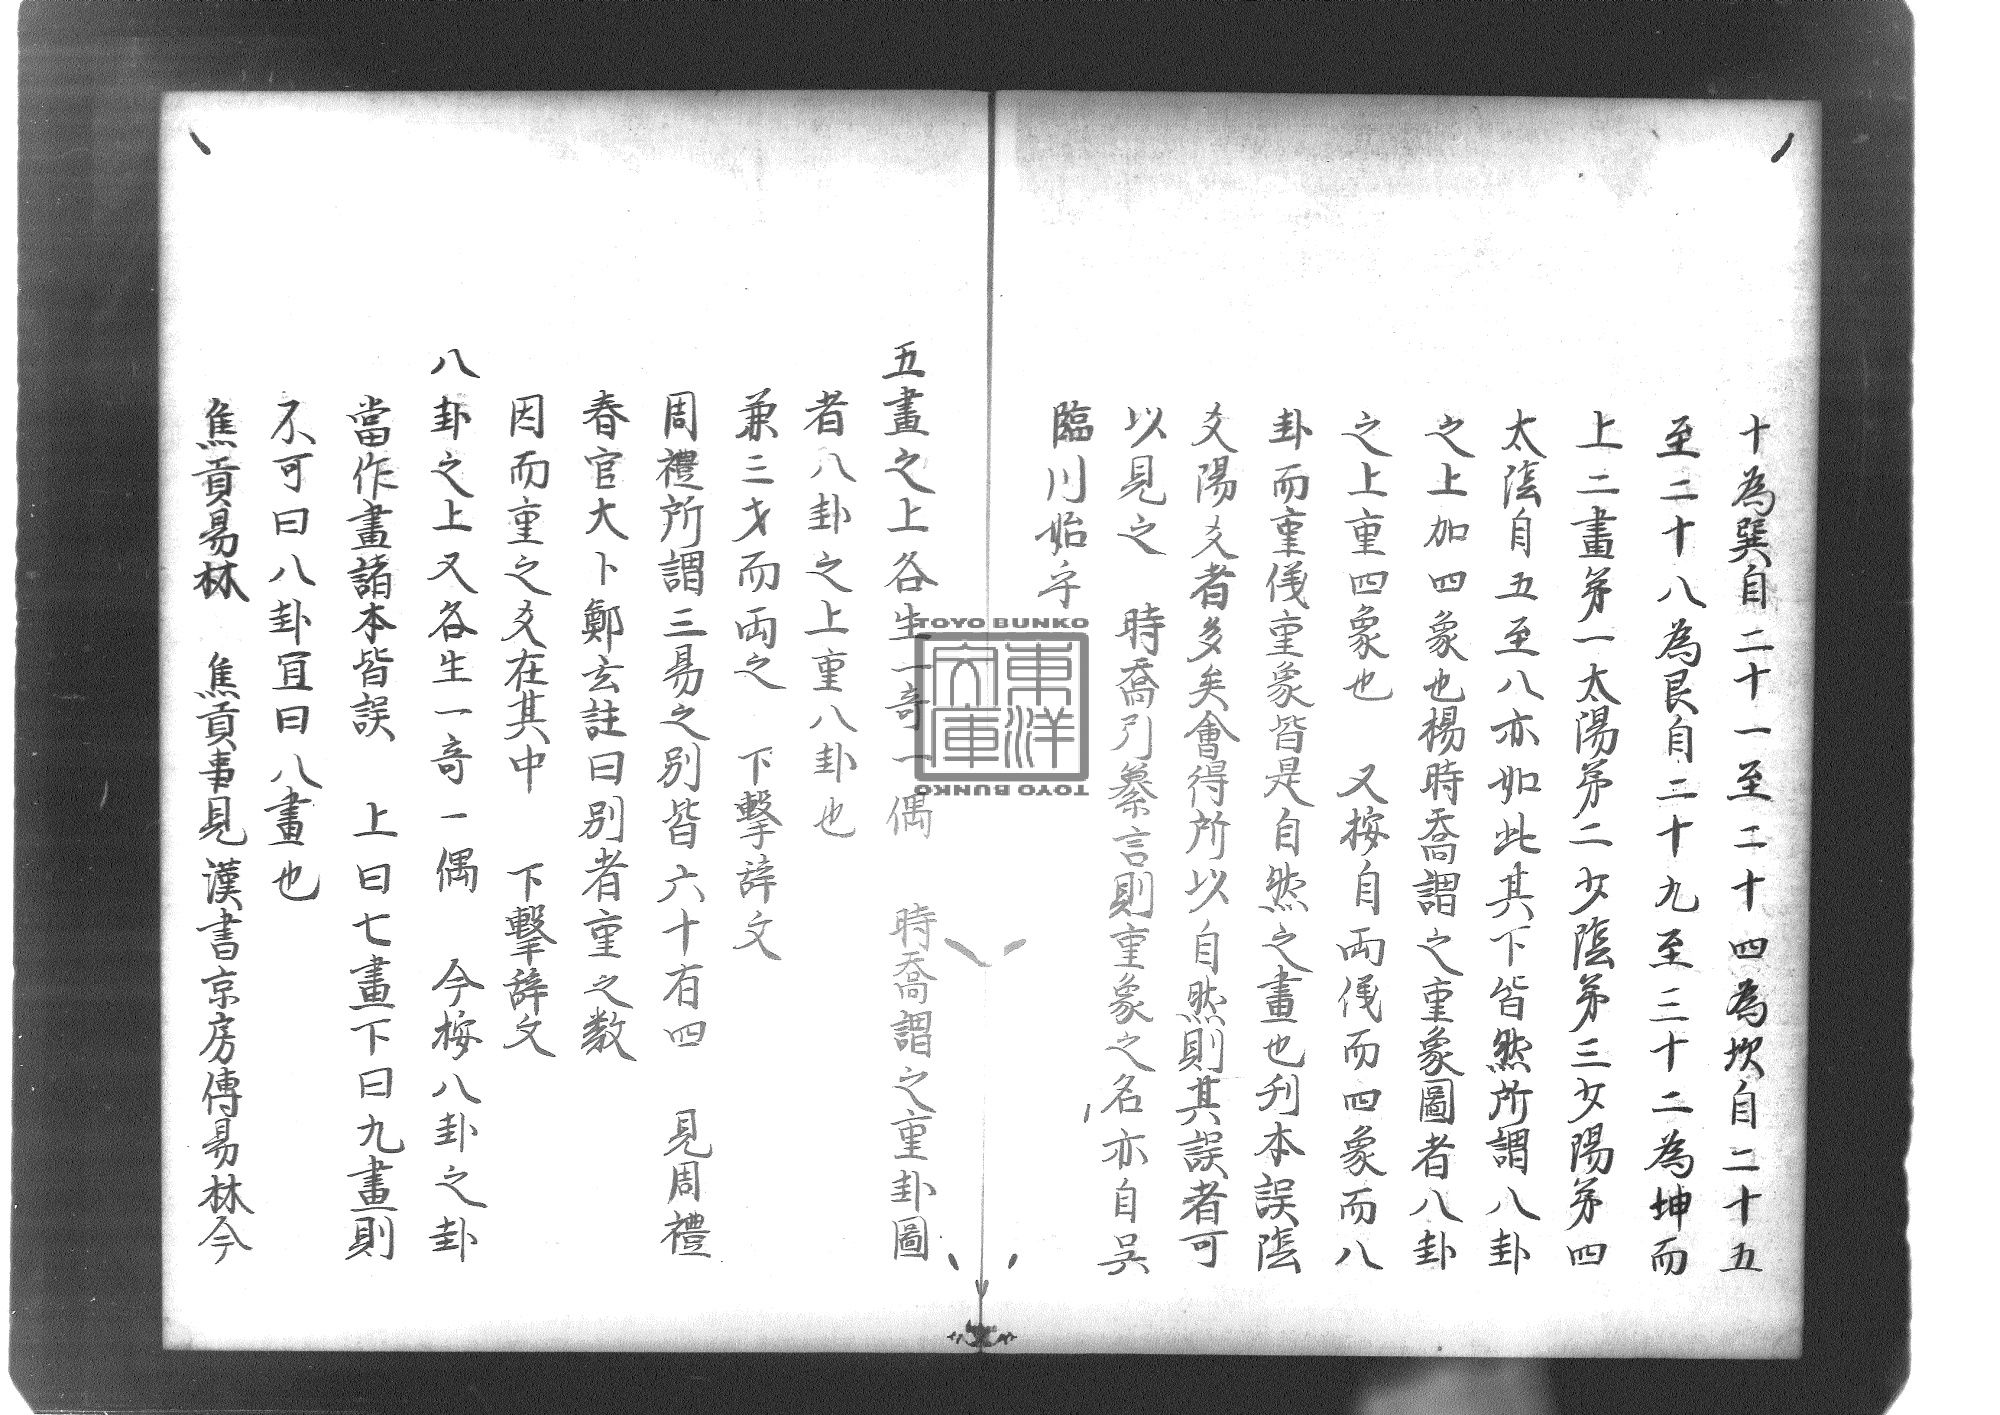 十為巽自二十一至二十四為坎自二十五
至二十八為艮自二十九至三十二為坤而
上二畫第一太陽第二少陰第三少陽第四
太陰自五至八亦如此其下皆然所謂八卦
之上加四象也楊時喬謂之重象圖者八卦
之上重四象也　又按自両儀而四象而八
卦而重儀重象皆是自然之畫也刋本誤陰
爻陽爻者多矣會得所以自然則其誤者可
以見之　時喬引纂言則重象之名亦自吳
臨川始乎
五畫之上各生一奇一偶　時喬謂之重卦圖
者八卦之上重八卦也
兼三才而両之　下擊辞文
周禮所謂三易之别皆六十有四　見周禮
春官大卜鄭玄註曰别者重之数
因而重之爻在其中　下擊辞文
八卦之上又各生一奇一偶　今按八卦之卦
當作畫諸本皆誤　上曰七畫下曰九畫則
不可曰八卦宜曰八畫也
焦貢易林　焦貢事見漢書京房傳易林今
TOYO BUNKO
東洋文庫
TOYO BUNKO